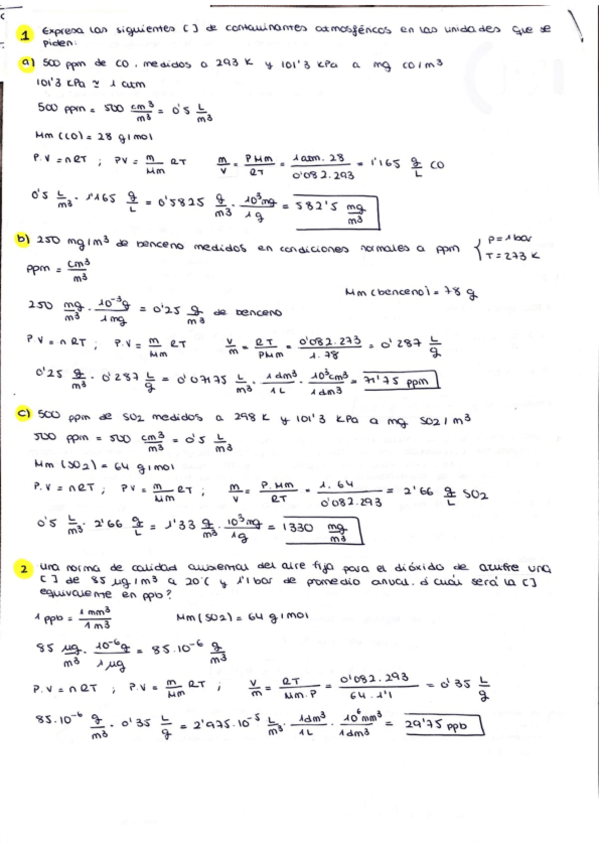 1 Expresa las siguientes [ ] de contaminantes atmosféricos en las unidades que se
piden:
a) 500 ppm de CO, medidos a 293 K y 101'3 KPa a mg CO/m³
101'3 KPa ≃ 1 atm
500 ppm = 500 cm³/m³ = 0'5 L/m³
Mm (CO) = 28 g/mol
P.V = nRT ; PV = m/Mm RT m/V = P Mm/RT = 1 atm. 28/0'082.293 = 1'165 g/L CO
0'5 L/m³ · 1'165 g/L = 0'5825 g/m³ · 10³mg/1g = 582'5 mg/m³
b) 250 mg/m³ de benceno medidos en condiciones normales a ppm { P=1bar
T = 273 K
ppm = cm³/m³
Mm (benceno) = 78 g
250 mg/m³ · 10⁻³g/1mg = 0'25 g/m³ de benceno
P V = n RT ; P.V = m/Mm RT V/m = RT/PMm = 0'082.273/1.78 = 0'287 L/g
0'25 g/m³ · 0'287 L/g = 0'07175 L/m³ · 1dm³/1L · 10³cm³/1dm³ = 71'75 ppm
c) 500 ppm de SO2 medidos a 298 K y 101'3 KPa a mg SO2/m³
500 ppm = 500 cm³/m³ = 0'5 L/m³
Mm (SO2) = 64 g/mol
P.V = nRT ; PV = m/Mm RT ; m/V = P.Mm/RT = 1.64/0'082.293 = 2'66 g/L SO2
0'5 L/m³ · 2'66 g/L = 1'33 g/m³ · 10³mg/1g = 1330 mg/m³
2 una norma de calidad ambiental del aire fija para el dióxido de azufre una
[ ] de 85 µg/m³ a 20°C y 1'1 bar de promedio anual. ¿cuál será la [ ]
equivalente en ppb?
1 ppb = 1 mm³/1 m³ Mm (SO2) = 64 g/mol
85 µg/m³ · 10⁻⁶g/1 µg = 85.10⁻⁶ g/m³
P.V = nRT ; P.V = m/Mm RT ; V/m = RT/Mm.P = 0'082.293/64.1'1 = 0'35 L/g
85.10⁻⁶ g/m³ · 0'35 L/g = 2'975.10⁻⁵ L/m³ · 1dm³/1L · 10⁶mm³/1dm³ = 29'75 ppb